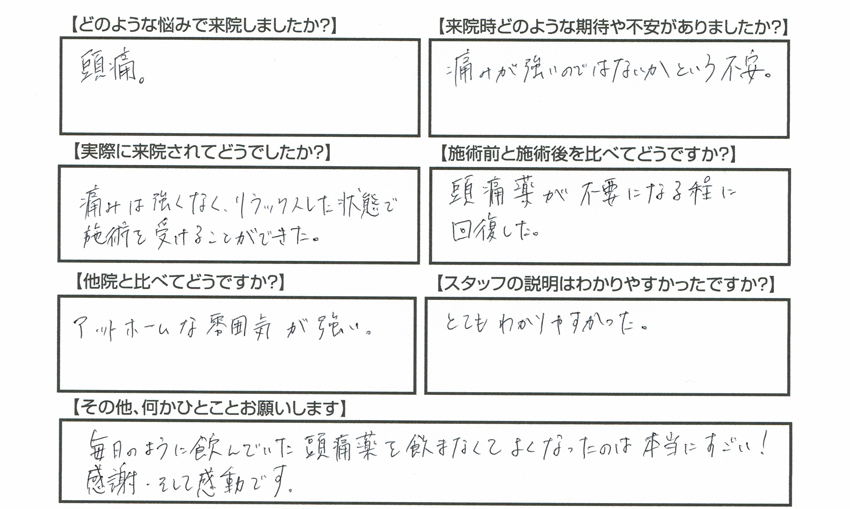 【どのような悩みで来院しましたか?】
頭痛。
【来院時どのような期待や不安がありましたか?】
痛みが強いのではないかという不安。
【実際に来院されてどうでしたか?】
痛みは強くなく、リラックスした状態で
施術を受けることができた。
【施術前と施術後を比べてどうですか?】
頭痛薬が不要になる程に
回復した。
【他院と比べてどうですか?】
アットホームな雰囲気が強い。
【スタッフの説明はわかりやすかったですか?】
とてもわかりやすかった。
【その他、何かひとことお願いします】
毎日のように飲んでいた頭痛薬を飲まなくてよくなったのは本当にすごい!
感謝・そして感動です。